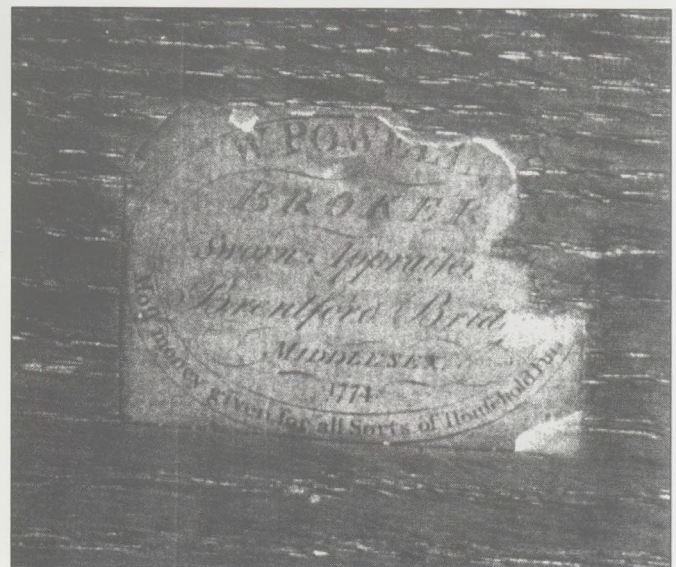 W. POWELL,
BROKER
Sworn Appraiser
Brentford Brid
MIDDLESEX.
1774
Moſt money given for all Sorts of Houſehold Fur